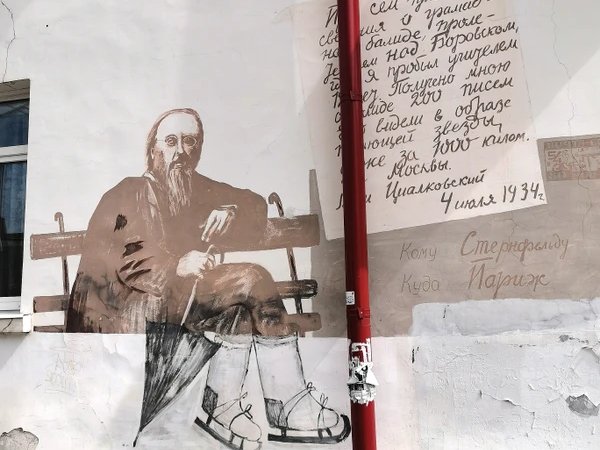 сем
и о грамад-
балиде, проле-
ем над Боровском,
я пробыл учителем
Получено мною
200 писем
видели в образе
звезды,
за 1000 килом.
Москвы.
Циалковский
4 июля 1934 г.
Кому Стернфельду
Куда Париж